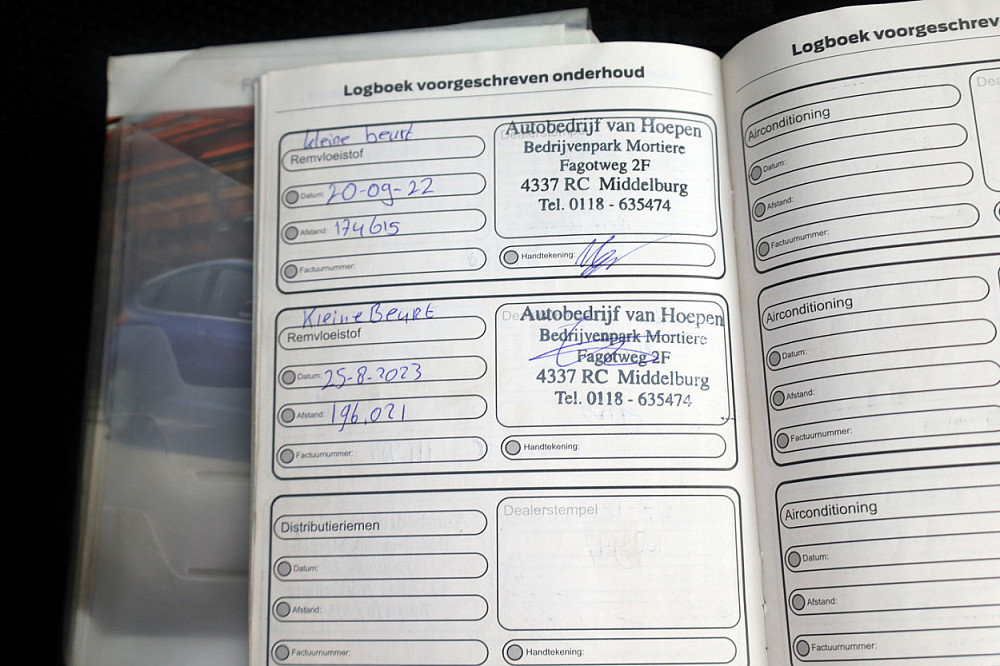 Logboek voorgeschreven onderhoud
kleine beurt
Remvloeistof
Datum: 20-09-22
Afstand: 174615
Factuurnummer:
Autobedrijf van Hoepen
Bedrijvenpark Mortiere
Fagotweg 2F
4337 RC Middelburg
Tel. 0118 - 635474
Handtekening:
Kleine Beurt
Remvloeistof
Datum: 25-8-2023
Afstand: 196.021
Factuurnummer:
Autobedrijf van Hoepen
Bedrijvenpark Mortiere
Fagotweg 2F
4337 RC Middelburg
Tel. 0118 - 635474
Handtekening:
Distributieriemen
Datum:
Afstand:
Factuurnummer:
Dealerstempel
Handtekening:
Logboek voorgeschreven
Airconditioning
Datum:
Afstand:
Factuurnummer:
Airconditioning
Datum:
Afstand:
Factuurnummer:
Airconditioning
Datum:
Afstand:
Factuurnummer: